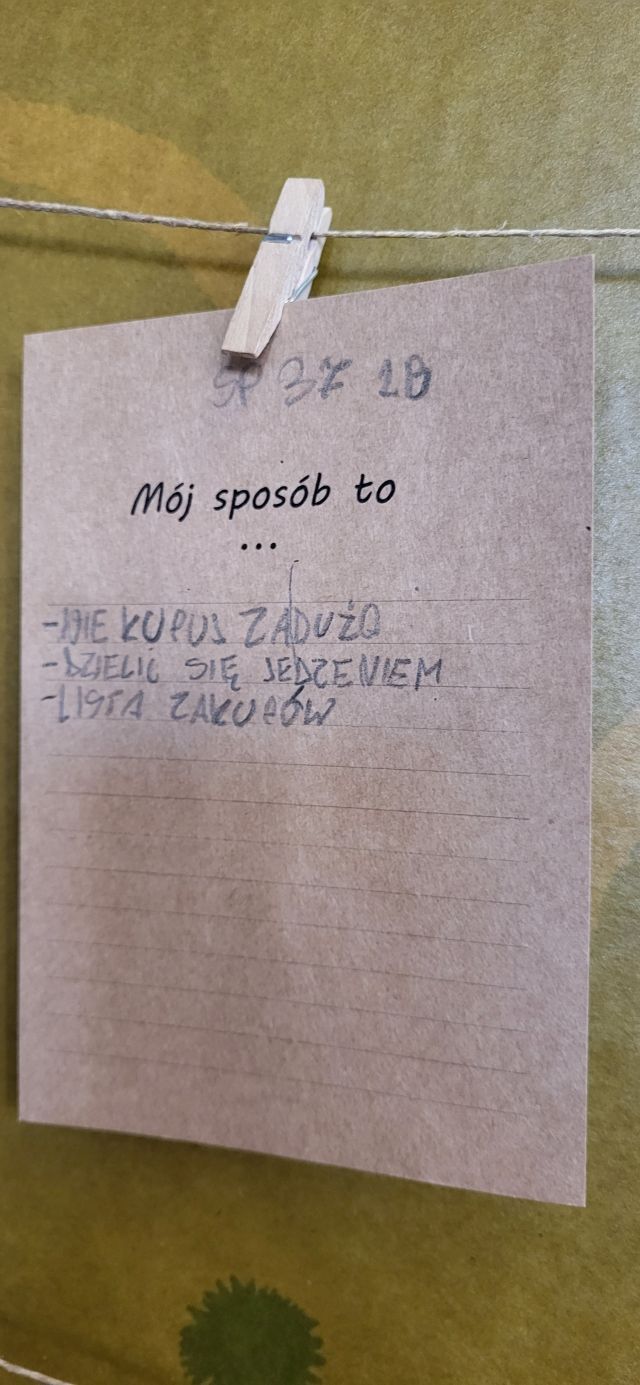 SP 37 1B
Mój sposób to
...
-NIE KUPUJ ZADUŻO
-DZIELIĆ SIĘ JEDZENIEM
-LISTA ZAKUPÓW